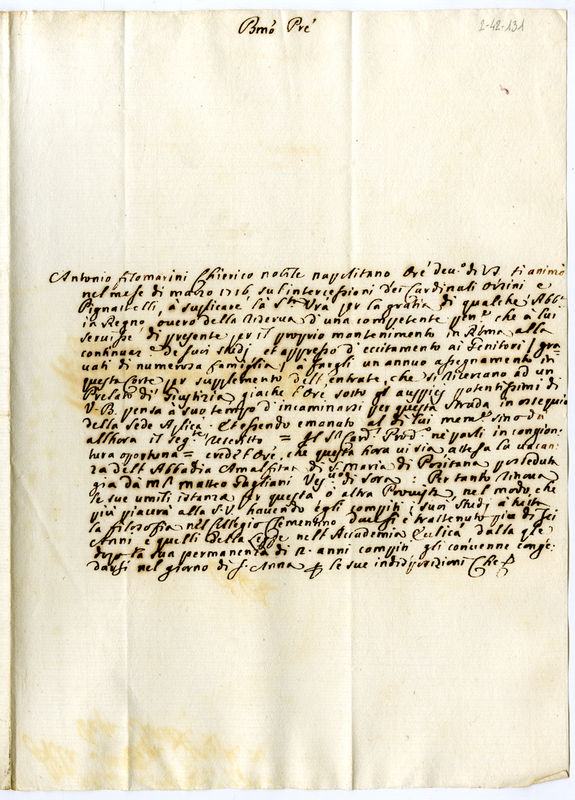 Bmõ Prè
2-42-131
Antonio filomarini Chierico nobile napolitano Orè deu.º di V.B. si animò
nel mese di marzo 1716, su l'intercessioni dei Cardinali Orsini e
Pignattelli, à supplicare la S.tà Vrà per la gratia di qualche Abb.a
in Regno, ouero della Riserua d'una competente pen.e che à lui
seruisse di presente per il proprio mantenimento in Roma alla
continuaz.e De suoi studj et appresso d'eccitamento ai Genitori / gra
uati di numerosa famiglia / a fargli un annuo assegnamento in
questa Corte per supplemento dell'entrate, che si ricercano ad un
Prelato di Giustizia, giache l'Orè sotto gl'auspicj potentissimi di
V.B. pensa à suo tempo d'incaminarsi per questa strada in ossequio
della Sede Aplica: Et essendo emanato al di lui mem.le sino da
allhora il seg.te rescritto = al S.r Card. Prod. ne parli in congion-
tura oportuna = crede l'Orè, che questa hora ui sia, attesa la uacan-
za dell'Abbadia Amalfitana di S. Maria di Positana posseduta
già da Mr. Matteo Gagliani Ves.uo di Sora: Per tanto rinoua
le sue umili istanza per questa ò altra Prouista, nel modo, che
più piacerà alla S.V. hauendo egli compiti i suoi studj à tutta
la filosofia nel Collegio Clementino dou'si è trattenuto più di sei
Anni e quelli della Legge nell'Accademia dalla q.le
dopo la sua permanenza di 2. anni compiti gli conuenne conge-
darsi nel giorno di S. Anna p le sue indisposizioni Che